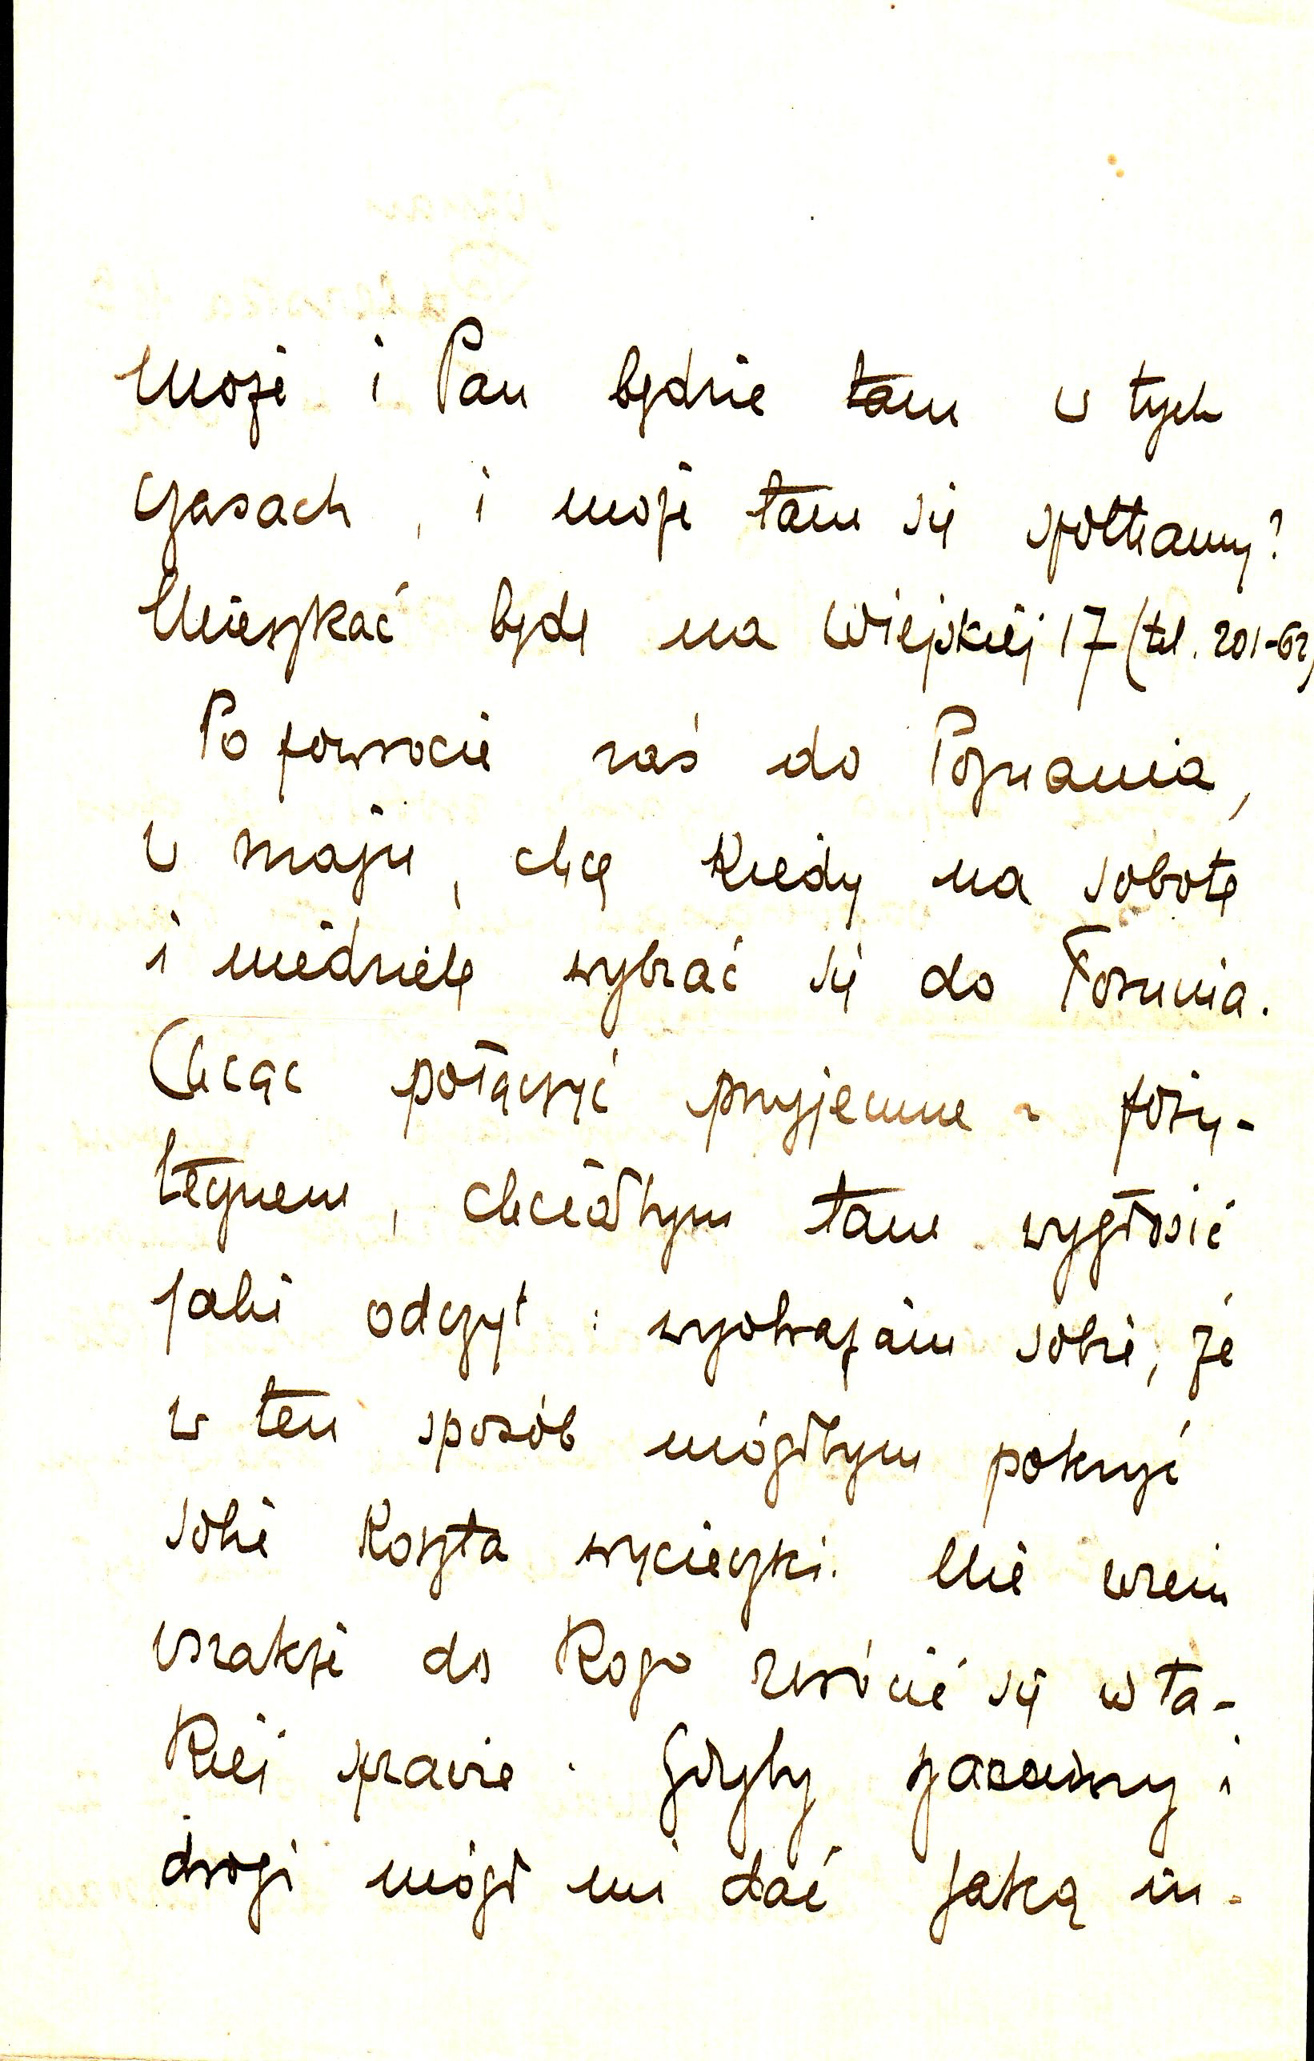 Może i Pan będzie tam w tych
czasach, i może tam się spotkamy?
Mieszkać będę na Wiejskiej 17 (tel. 201-62)
Po powrocie zaś do Poznania,
w maju, chcę kiedy na sobotę
i niedzielę wybrać się do Torunia.
Chcąc połączyć przyjemne z poży-
tecznem, chciałbym tam wygłosić
jaki odczyt: wyobrażam sobie, że
w ten sposób mógłbym pokryć
sobie koszta wycieczki. Nie wiem
wszakże do kogo zwrócić się w ta-
kiej sprawie. Gdyby szanowny i
drogi mógł mi dać jaką in-